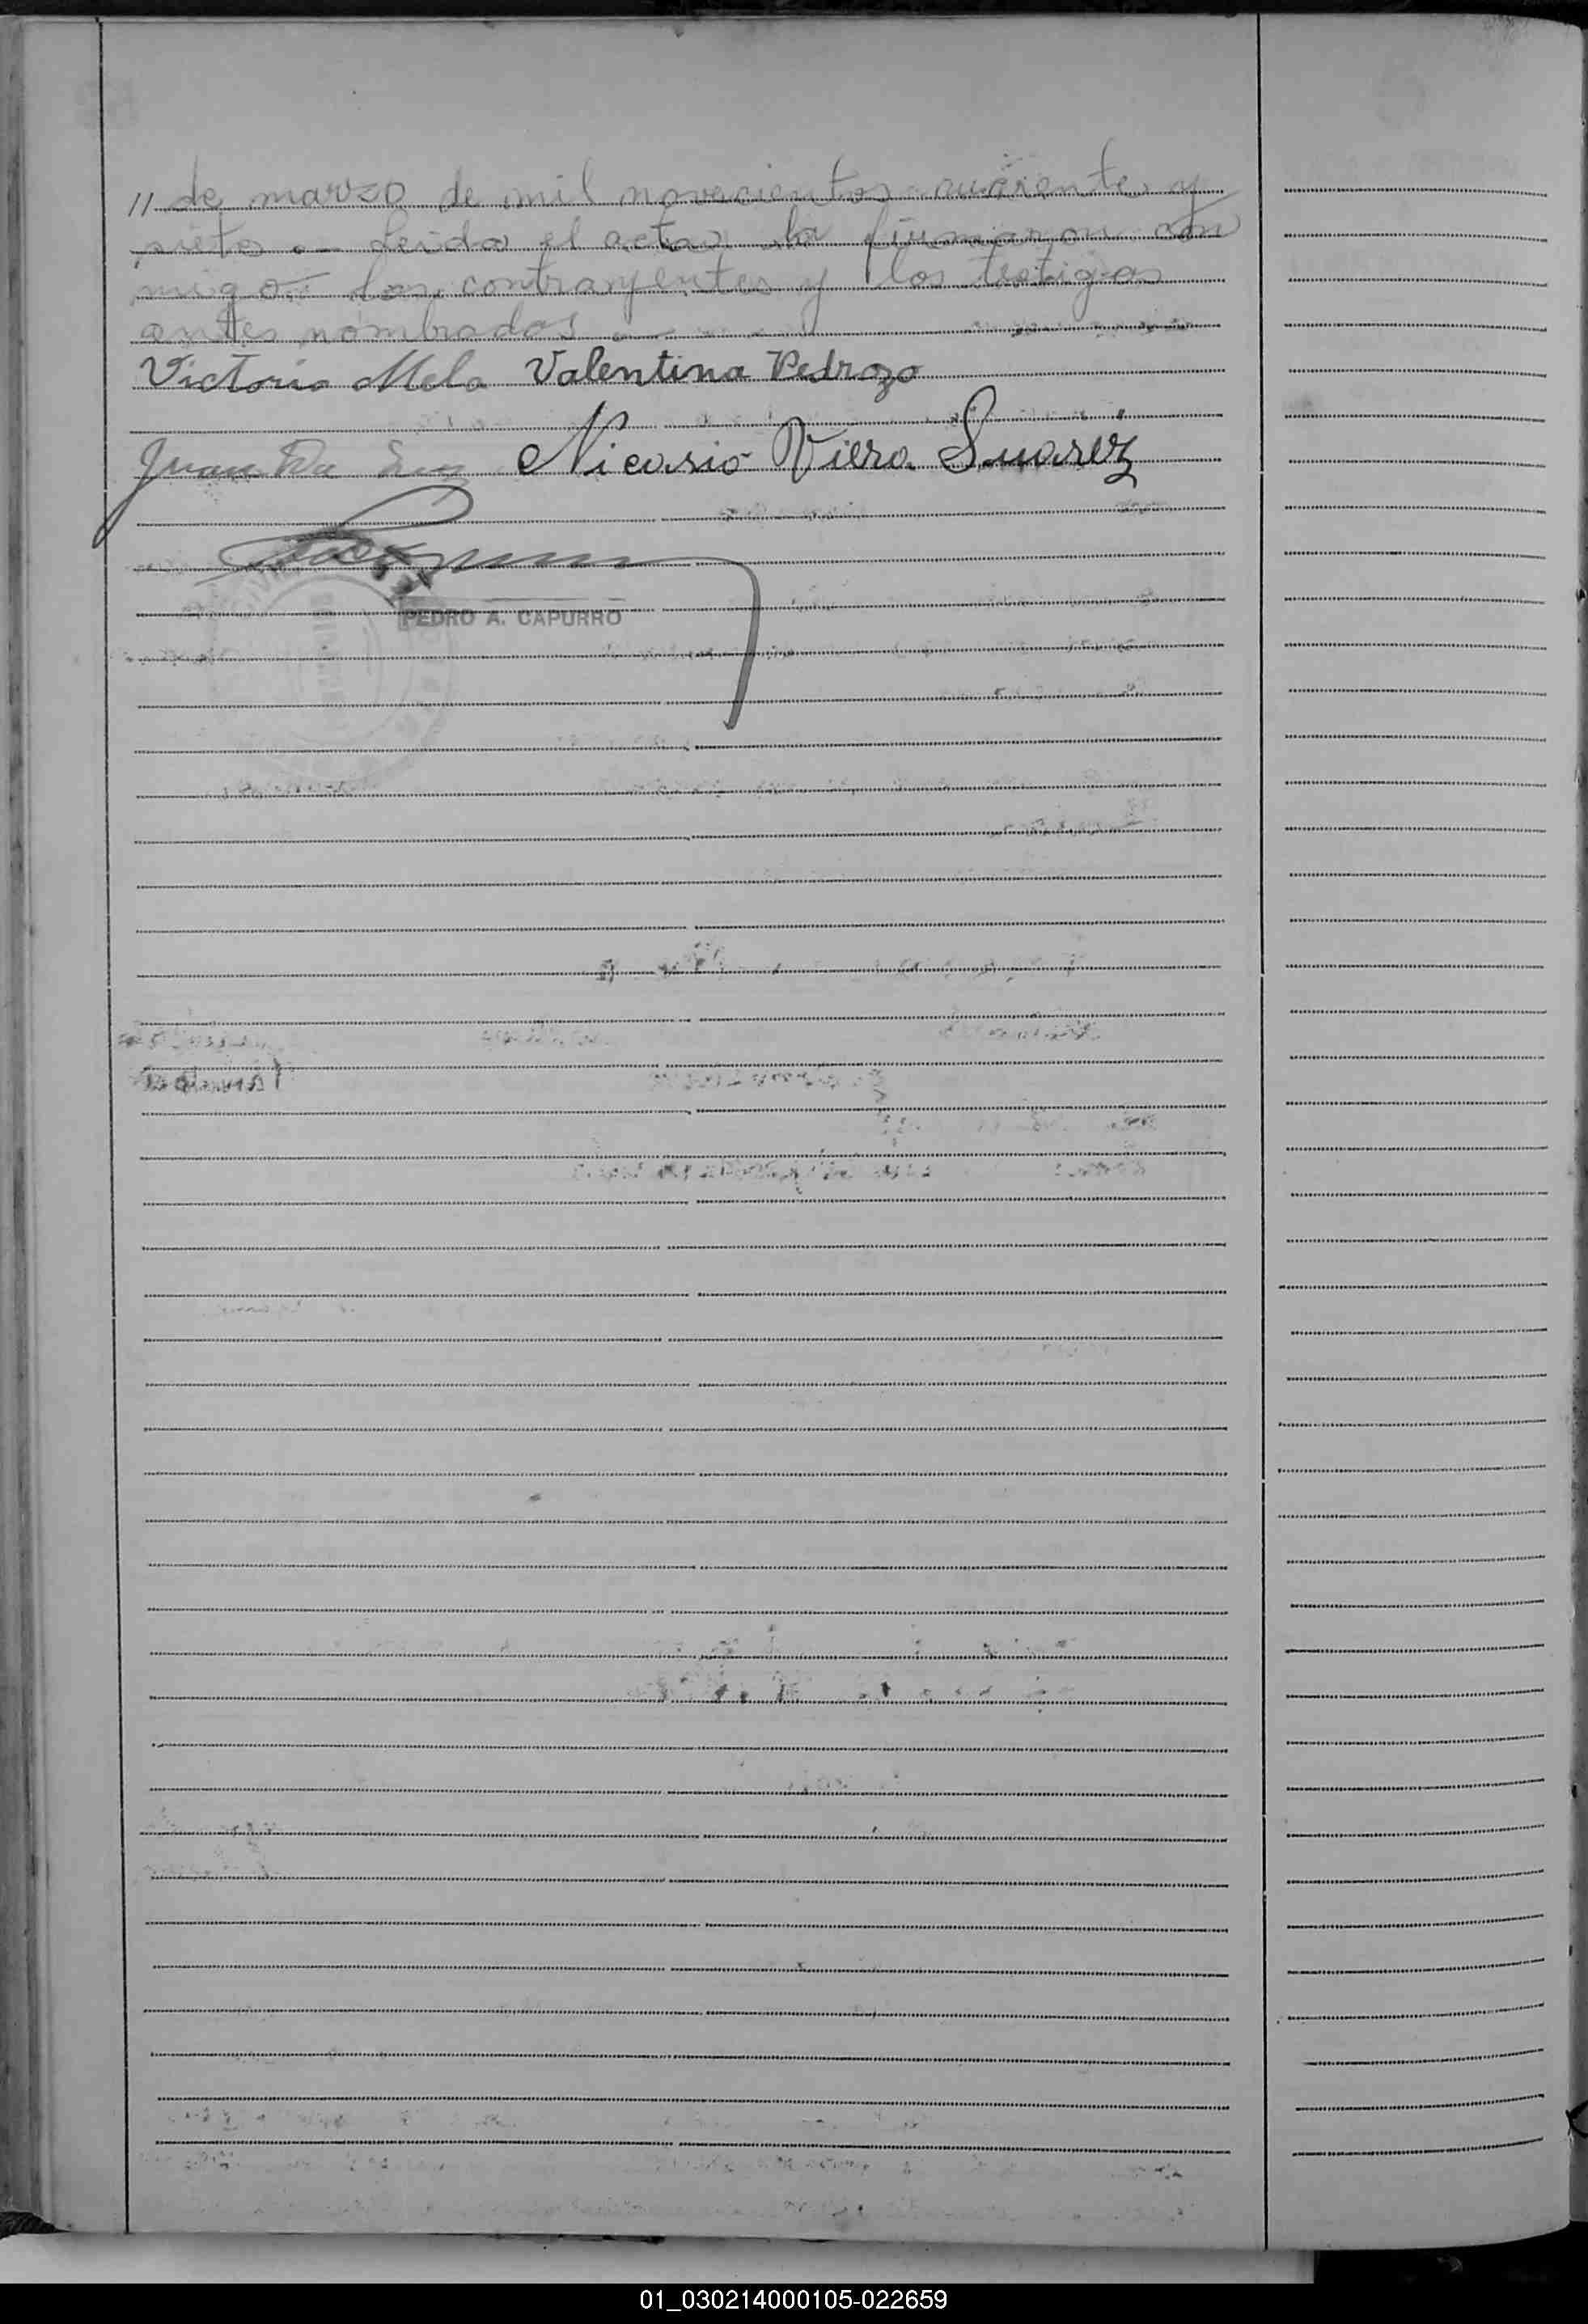 // de marzo de mil novecientos cuarenta y
siete. — Leida el acta, la firmaron con
migo los contrayentes y los testigos
antes nombrados
Victorio Mela Valentina Pedrozo
Juan Da Nicasio Viera Suarez
PEDRO A. CAPURRO
01_030214000105-022659